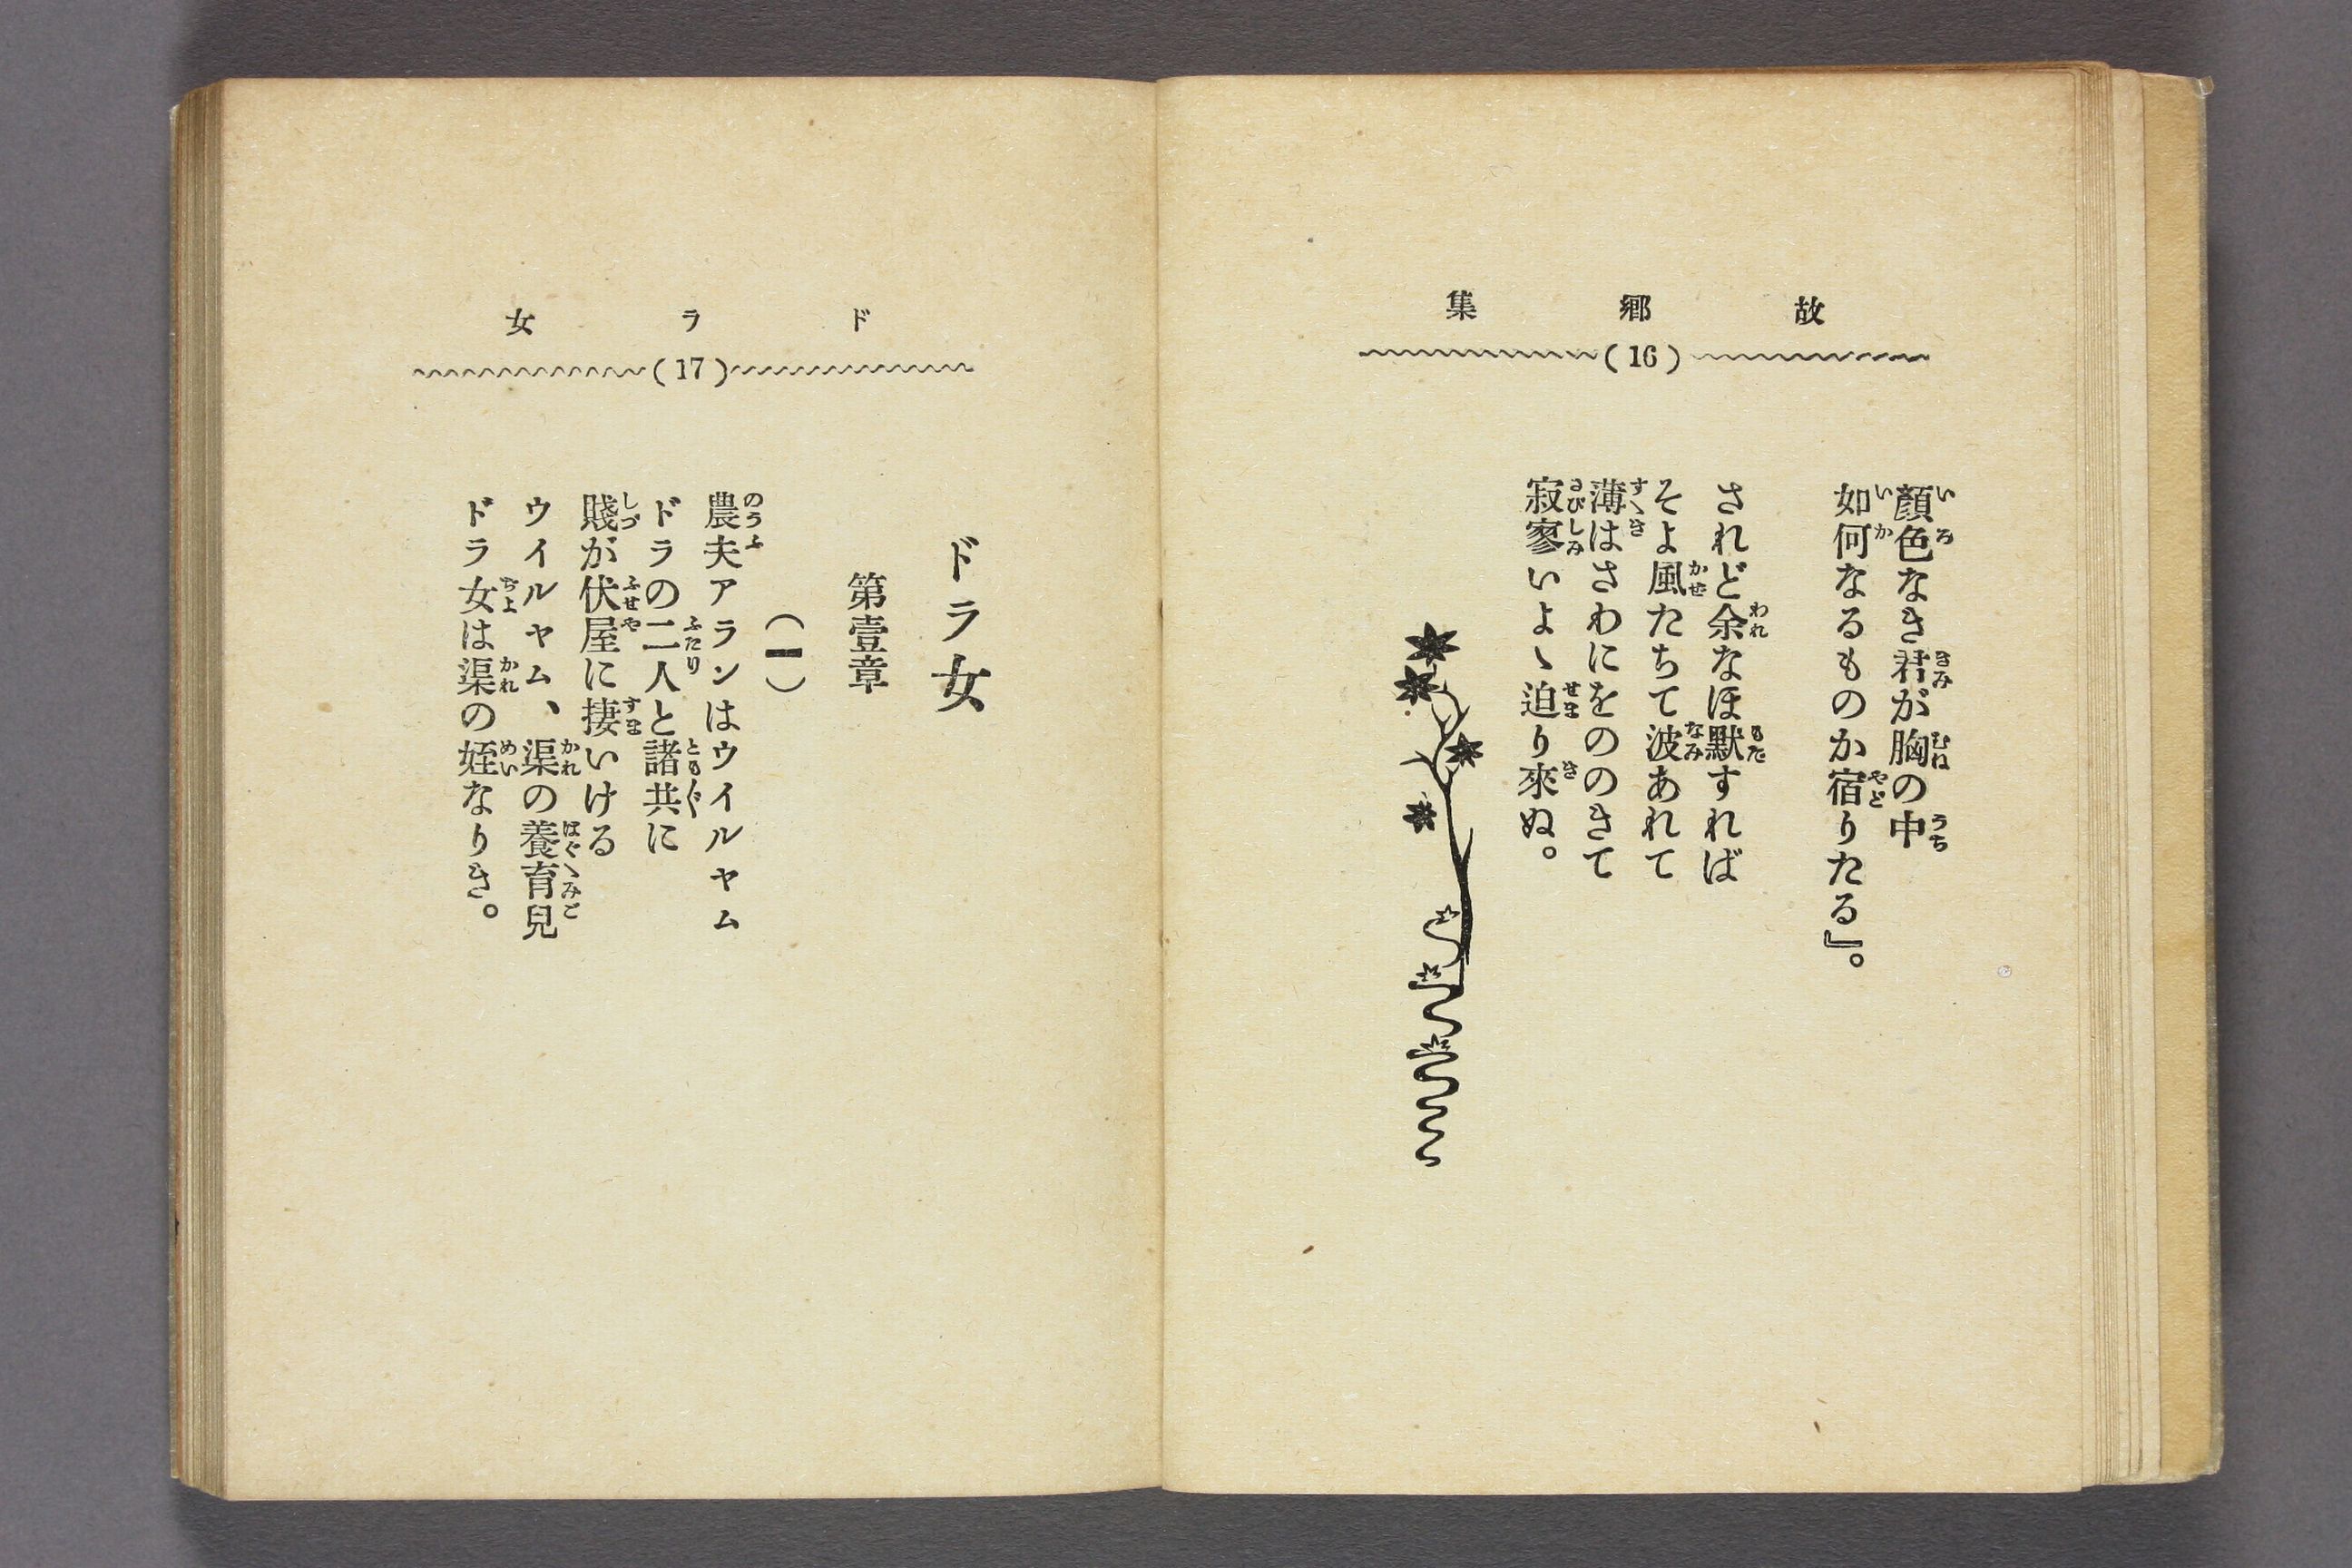 故郷集
(16)
顏色なき君が胸の中
如何なるものか宿りたる』。
されど余なほ默すれば
そよ風たちて波あれて
薄はさわにをののきて
寂寥いよゝ迫り來ぬ。
ドラ女
(17)
ドラ女
第壹章
(一)
農夫アランはウイルヤム
ドラの二人と諸共に
賤が伏屋に捿いける
ウイルヤム、渠の養育兒
ドラ女は渠の姪なりき。